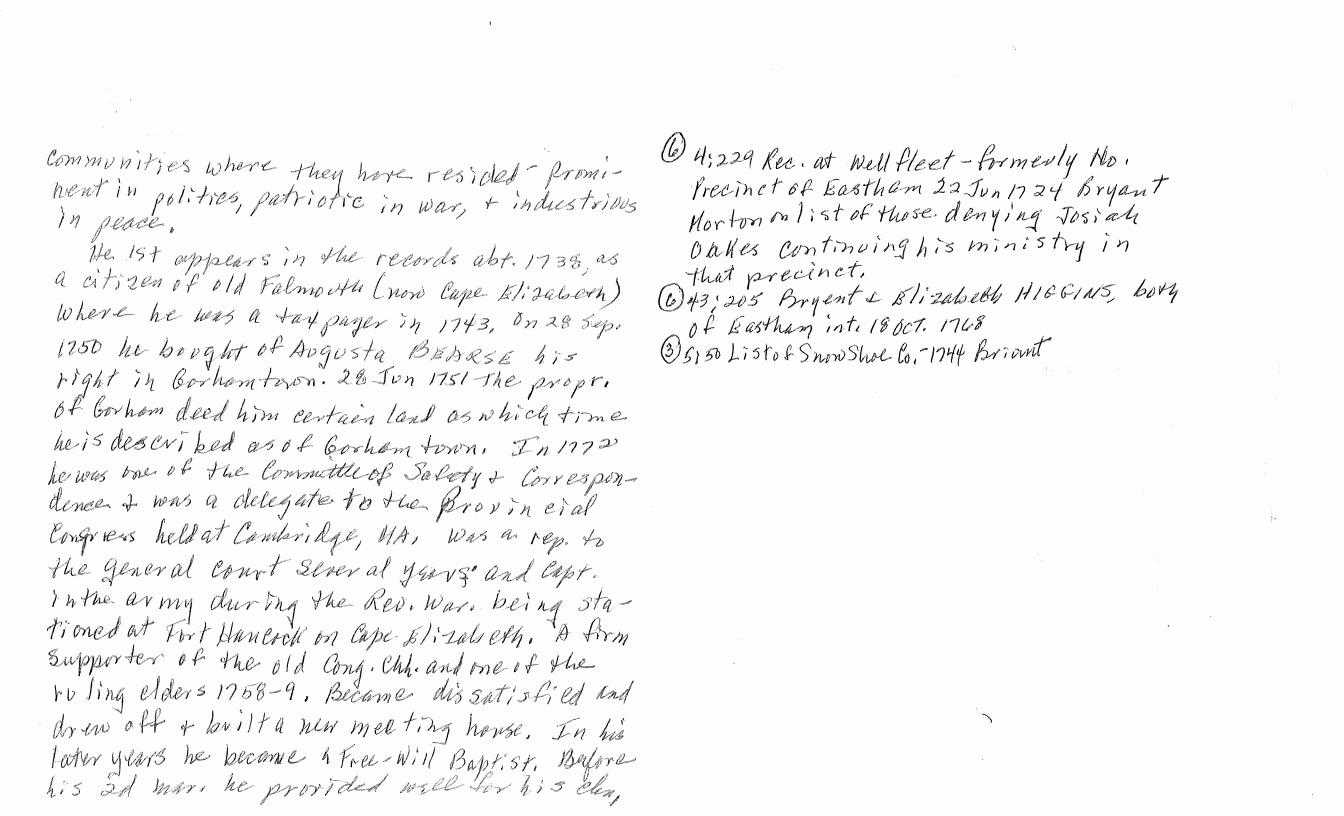 communities where they have resided - promi-
nent in politics, patriotic in war, + industrious
in peace.
He 1st appears in the records abt. 1738, as
a citizen of old Falmouth (now Cape Elizabeth)
where he was a tax payer in 1743. On 28 Sep.
1750 he bought of Augusta BEARSE his
right in Gorhamtown. 28 Jun 1751 the propr.
of Gorham deed him certain land as which time
he is described as of Gorhamtown. In 1772
he was one of the Committle of Safety + Correspon-
dence + was a delegate to the Provincial
Congress held at Cambridge, MA. was a rep. to
the general court several years and Capt.
in the army during the Rev. War. being sta-
tioned at Fort Hancock on Cape Elizabeth. A firm
supporter of the old Cong. Chh. and one of the
ruling elders 1758-9. Became dissatisfied and
drew off + built a new meeting house. In his
later years he became a Free-Will Baptist. Before
his 2d mar. he provided well for his chn,
⑥ 4:229 Rec. at Wellfleet - formerly No.
Precinct of Eastham 22 Jun 1724 Bryant
Morton on list of those denying Josiah
Oakes continuing his ministry in
that precinct.
⑥ 43:205 Bryent & Elizabeth HIGGINS, both
of Eastham int. 18 Oct. 1768
③ 5:50 List of Snow Shoe Co. - 1744 Briant